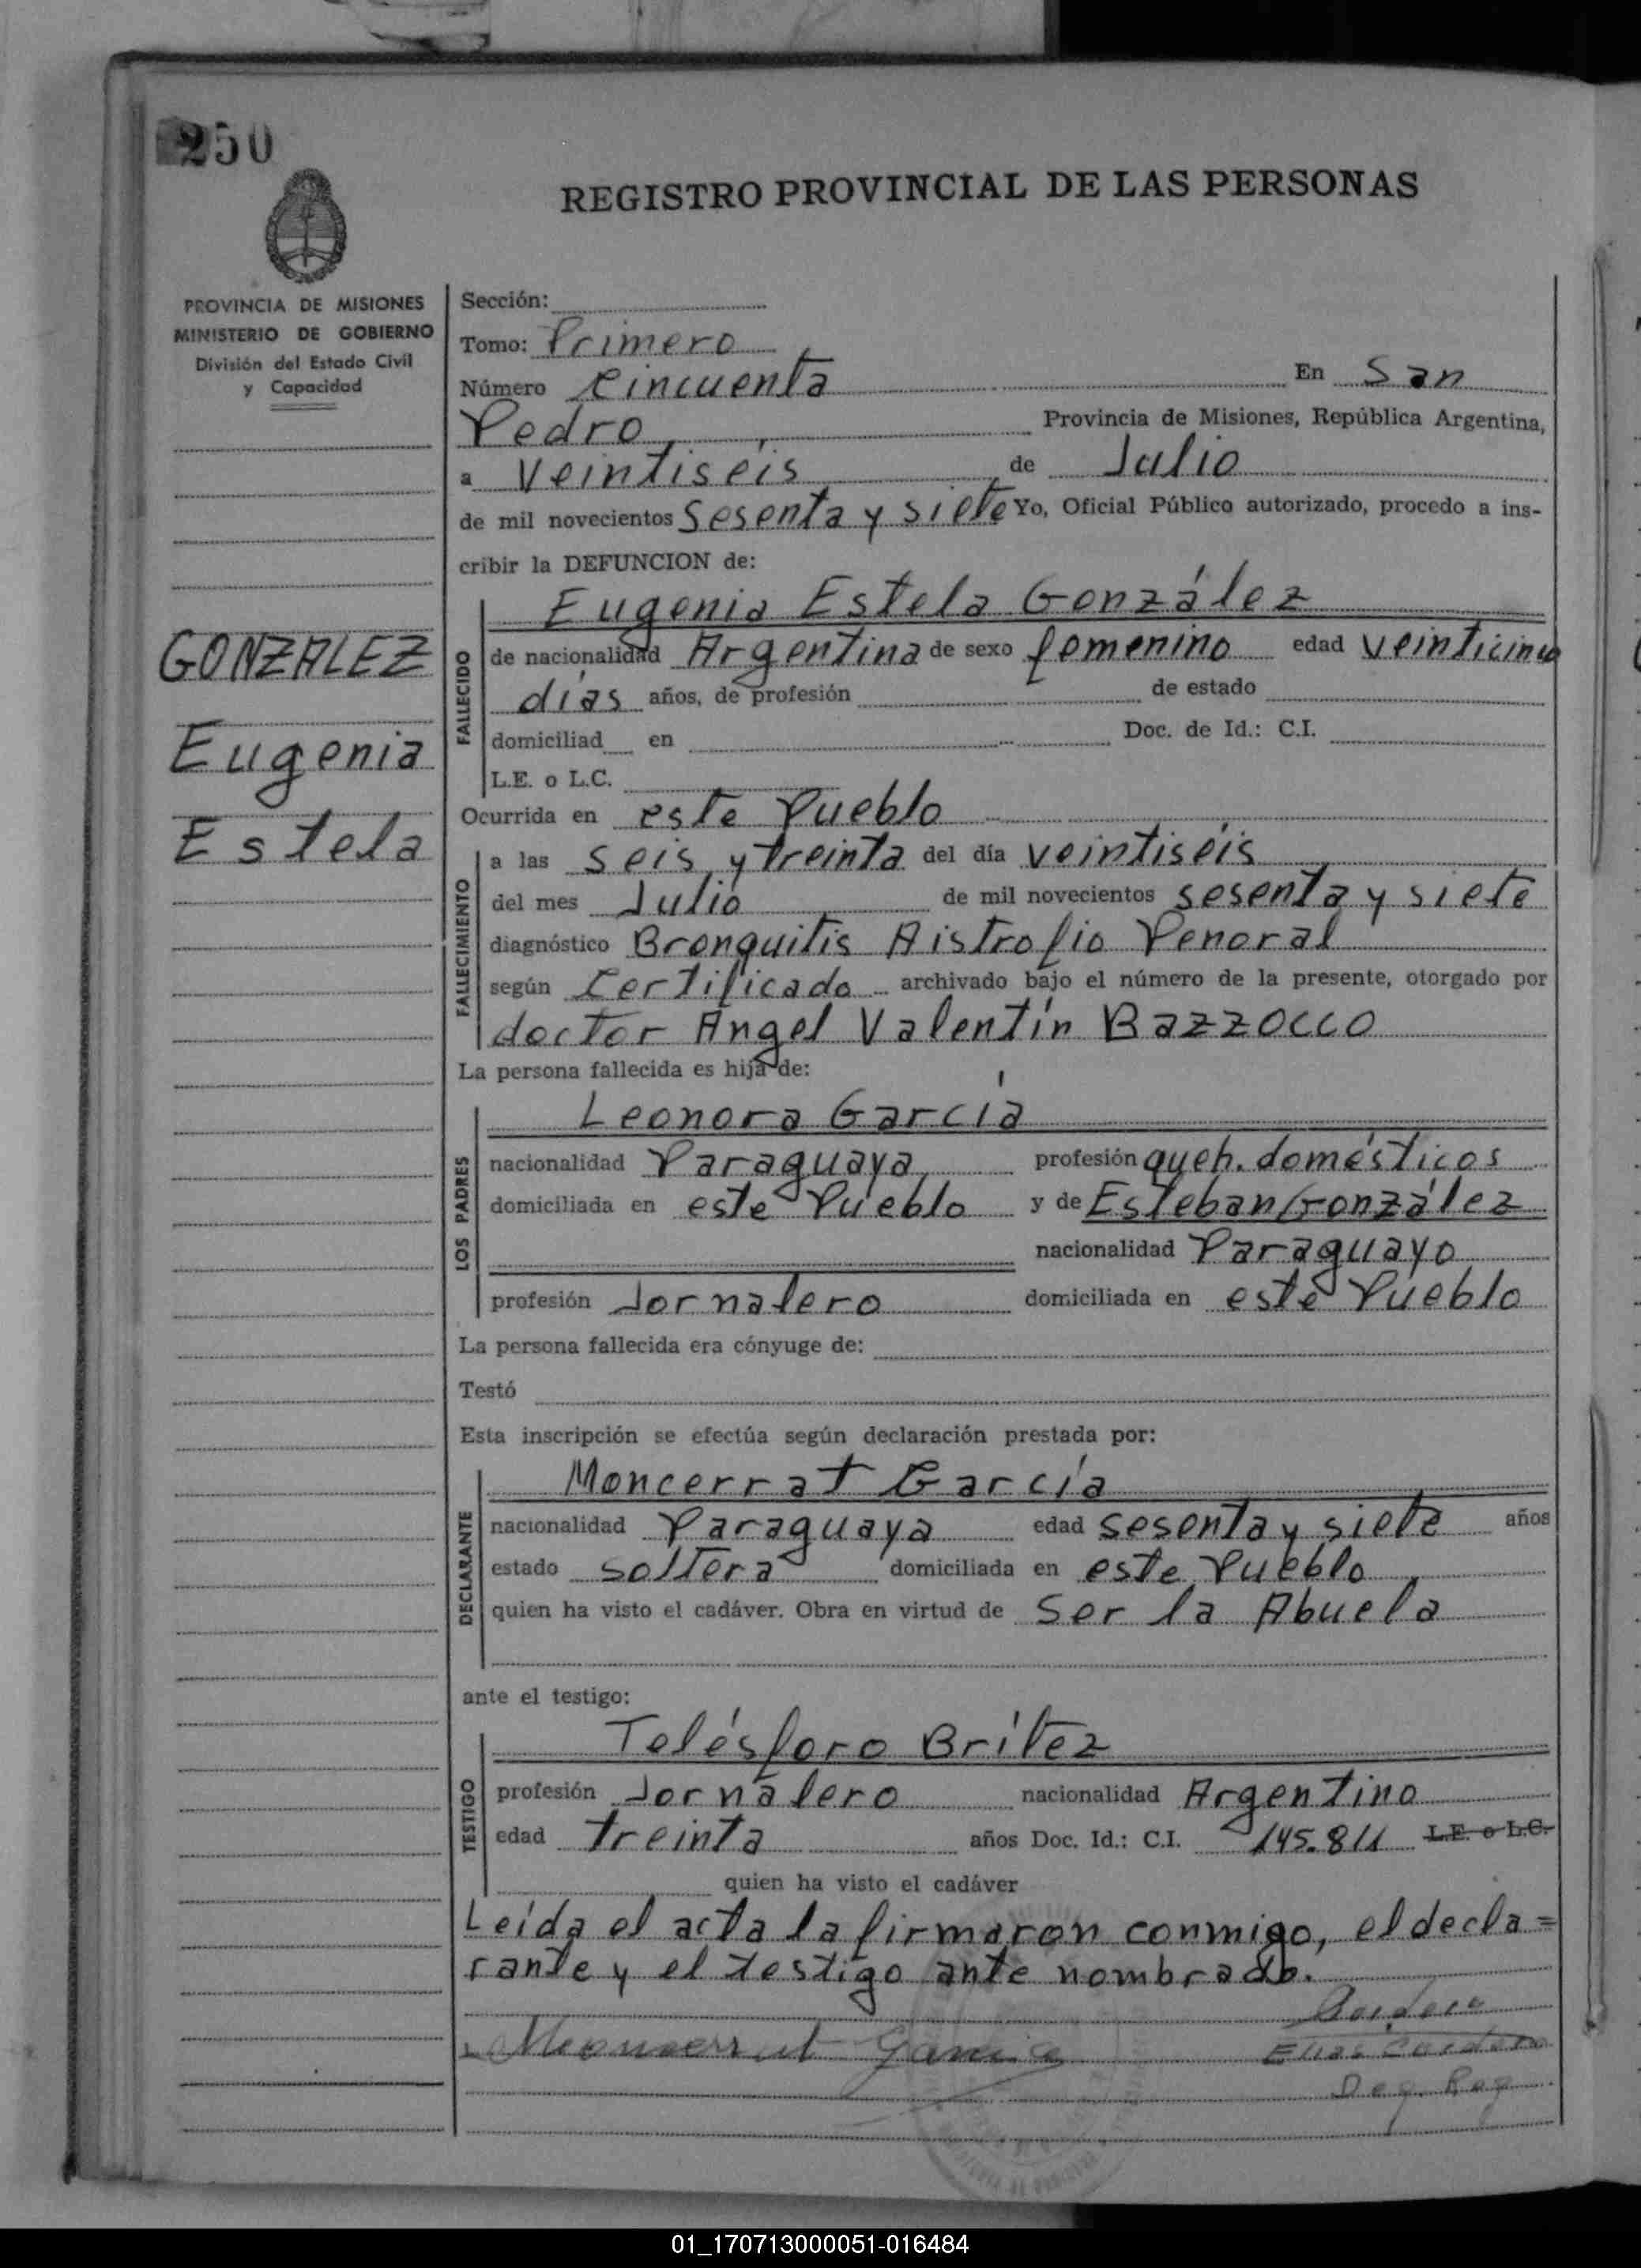 250
REGISTRO PROVINCIAL DE LAS PERSONAS
PROVINCIA DE MISIONES
MINISTERIO DE GOBIERNO
División del Estado Civil
y Capacidad
GONZALEZ
Eugenia
Estela
Sección:
Tomo: Primero
Número Cincuenta En San
Pedro, Provincia de Misiones, República Argentina,
a veintiséis de Julio
de mil novecientos Sesenta y siete Yo, Oficial Público autorizado, procedo a ins-
cribir la DEFUNCION de:
Eugenia Estela González
FALLECIDO
de nacionalidad Argentina de sexo femenino edad veinticinco
días años, de profesión de estado
domiciliad en Doc. de Id.: C.I.
L.E. o L.C.
Ocurrida en este Pueblo
FALLECIMIENTO
a las seis y treinta del día veintiséis
del mes Julio de mil novecientos sesenta y siete
diagnóstico Bronquitis Aistrofio Penoral
según Certificado archivado bajo el número de la presente, otorgado por
doctor Angel Valentín Bazzocco
La persona fallecida es hija de:
Leonora García
LOS PADRES
nacionalidad Paraguaya profesión queh. domésticos
domiciliada en este Pueblo y de Esteban González
nacionalidad Paraguayo
profesión Jornalero domiciliada en este Pueblo
La persona fallecida era cónyuge de:
Testó
Esta inscripción se efectúa según declaración prestada por:
Moncerrat García
DECLARANTE
nacionalidad Paraguaya edad sesenta y siete años
estado soltera domiciliada en este Pueblo
quien ha visto el cadáver. Obra en virtud de Ser la Abuela
ante el testigo:
Telésforo Britez
TESTIGO
profesión Jornalero nacionalidad Argentino
edad treinta años Doc. Id.: C.I. 145.811 L.E. o L.C.
quien ha visto el cadáver
Leída el acta la firmaron conmigo, el decla=
rante y el testigo ante nombrado.
Monserrat Garcia
Elias
Deg. Reg
01_170713000051-016484